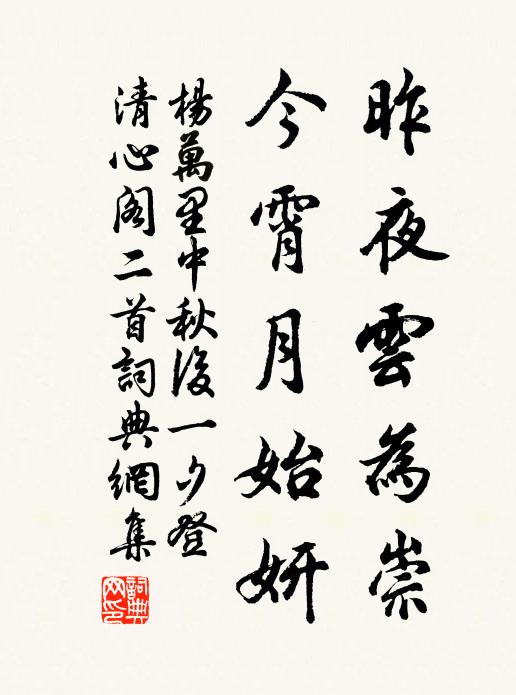 昨夜雲為祟
今霄月始妍
楊萬里中秋後一夕登
清心閣二首詞典網集
詞典網印